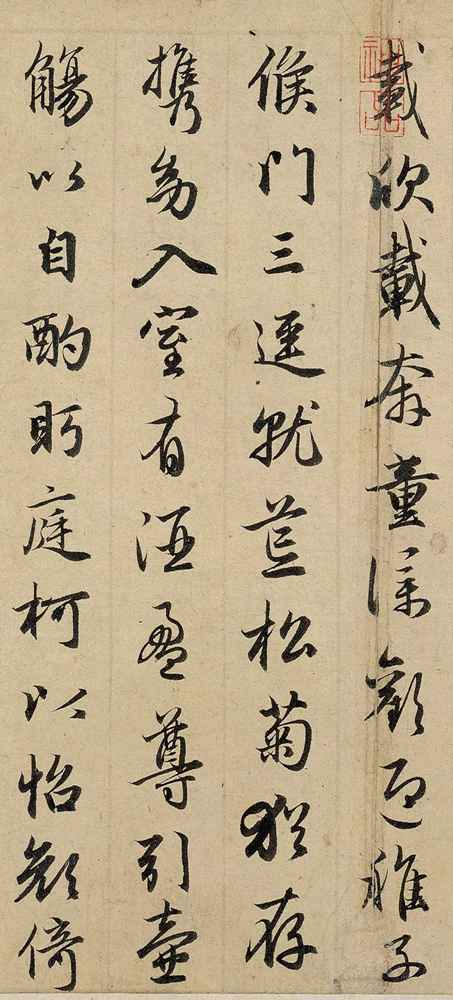 神品
載欣載奔童僕歡迎稚子
候門三逕就荒松菊猶存
携幼入室有酒盈尊引壺
觴以自酌眄庭柯以怡顔倚